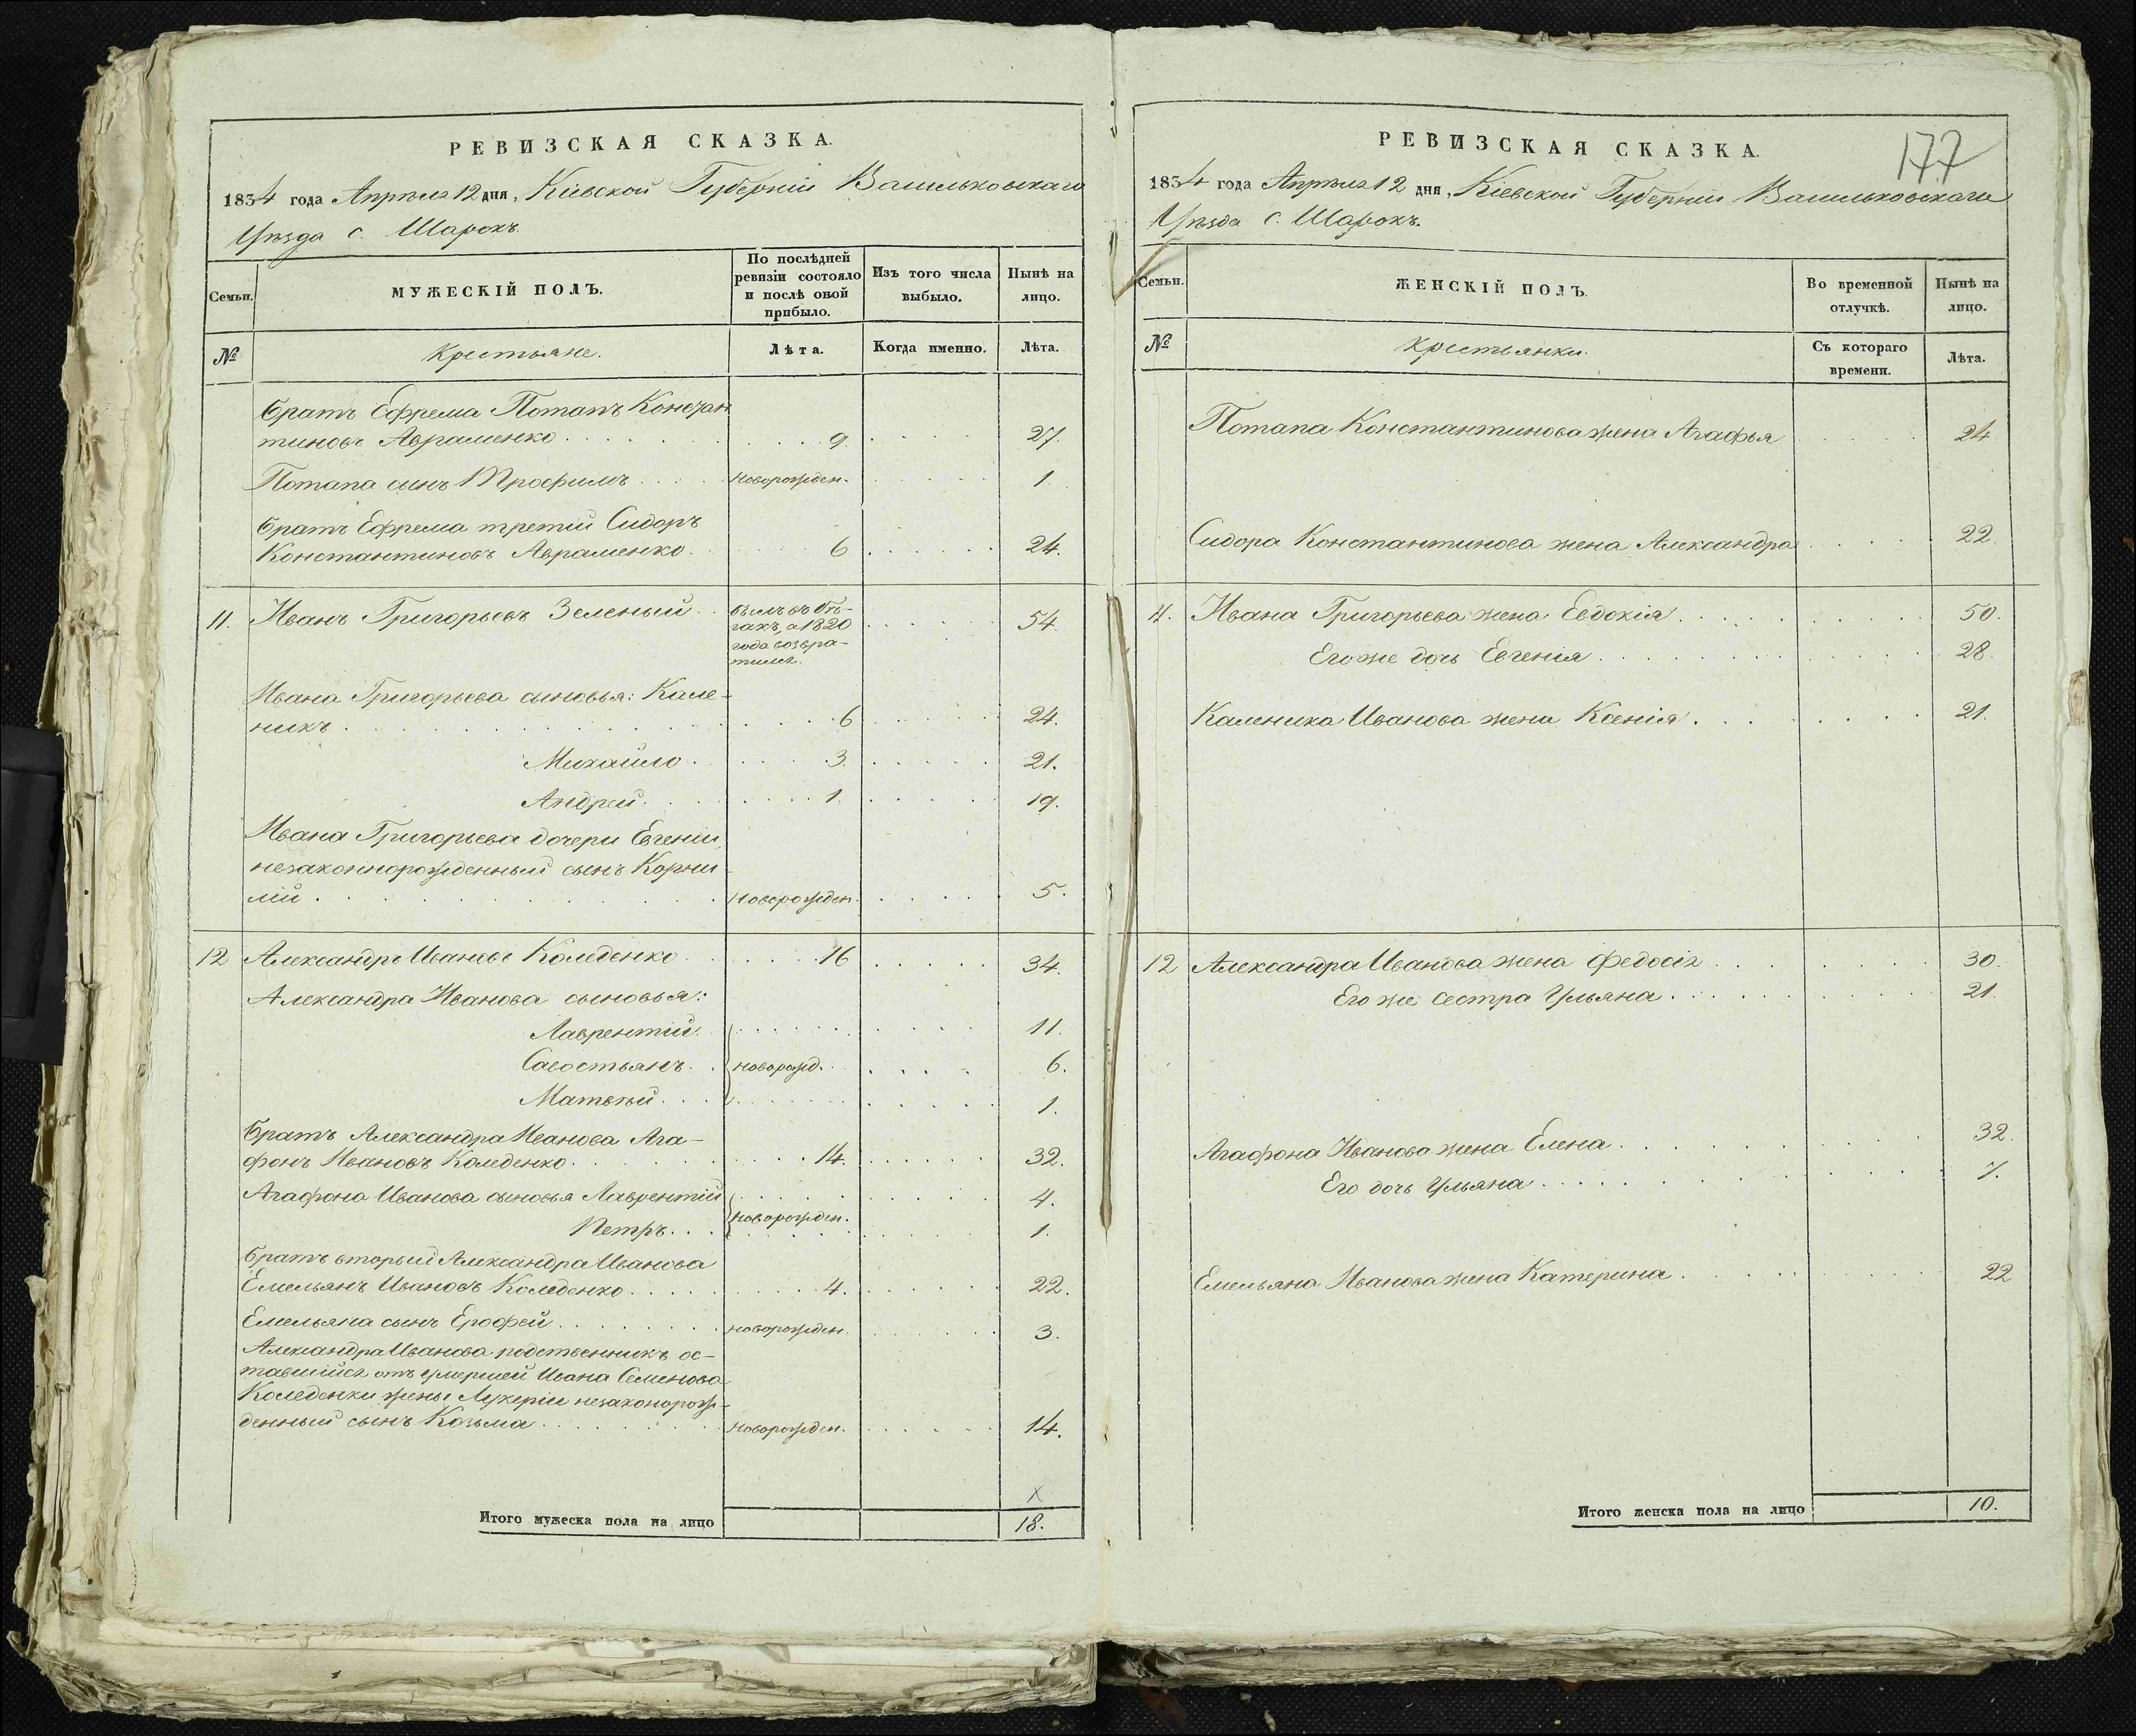 РЕВИЗСКАЯ СКАЗКА.
1834 года Апрѣля 12 дня, Кіевской Губерніи Васильковскаго
Уѣзда с. Шарокъ.
Семьи.
МУЖЕСКІЙ ПОЛЪ.
По послѣдней
ревизіи состояло
и послѣ оной
прибыло.
Изъ того числа
выбыло.
Нынѣ на
лицо.
№
Крестьяне.
Лѣта.
Когда именно.
Лѣта.
братъ Ефрема Потапъ Констан
тиновъ Авраменко 9. 27.
Потапа сынъ Трофимъ новорожден. 1.
братъ Ефрема третій Сидоръ
Константиновъ Авраменко. 6 24.
11. Иванъ Григорьевъ Зеленый былъ въ бѣ- 54.
гахъ, а 1820
года возвра-
тился.
Ивана Григорьева сыновья: Кале-
никъ 6 24.
Михайло 3. 21.
Андрей 1. 19.
Ивана Григорьева дочери Евгеніи
незаконнорожденный сынъ Корни
лій новорожден. 5.
12 Александръ Ивановъ Коледенко 16 34.
Александра Иванова сыновья:
Лаврентій 11.
Савостьянъ новорожд. 6.
Матвѣй 1.
братъ Александра Иванова Ага-
фонъ Ивановъ Коледенко 14. 32.
Агафона Иванова сыновья Лаврентій 4.
новорожден.
Петръ 1.
братъ вторый Александра Иванова
Емельянъ Ивановъ Коледенко 4. 22.
Емельяна сынъ Ерофей новорожден. 3.
Александра Иванова родственникъ ос-
тавшійся отъ умершей Ивана Семенова
Коледенки жены Лукеріи незаконорож-
денный сынъ Козьма новорожден. 14.
х
Итого мужеска пола на лицо 18.
177
РЕВИЗСКАЯ СКАЗКА.
1834 года Апрѣля 12 дня, Кіевской Губерніи Васильковскаго
Уѣзда с. Шарокъ.
Семьи.
ЖЕНСКІЙ ПОЛЪ.
Во временной
отлучкѣ.
Нынѣ на
лицо.
№
Крестьянки.
Съ котораго
времени.
Лѣта.
Потапа Константинова жена Агафья 24
Сидора Константинова жена Александра 22.
11. Ивана Григорьева жена Евдокія 50.
Его же дочь Евгенія 28.
Каленика Иванова жена Ксенія 21.
12 Александра Иванова жена Федосія 30.
Его же сестра Ульяна 21.
Агафона Иванова жена Елена 32.
Его дочь Ульяна 7.
Емельяна Иванова жена Катерина 22
Итого женска пола на лицо 10.